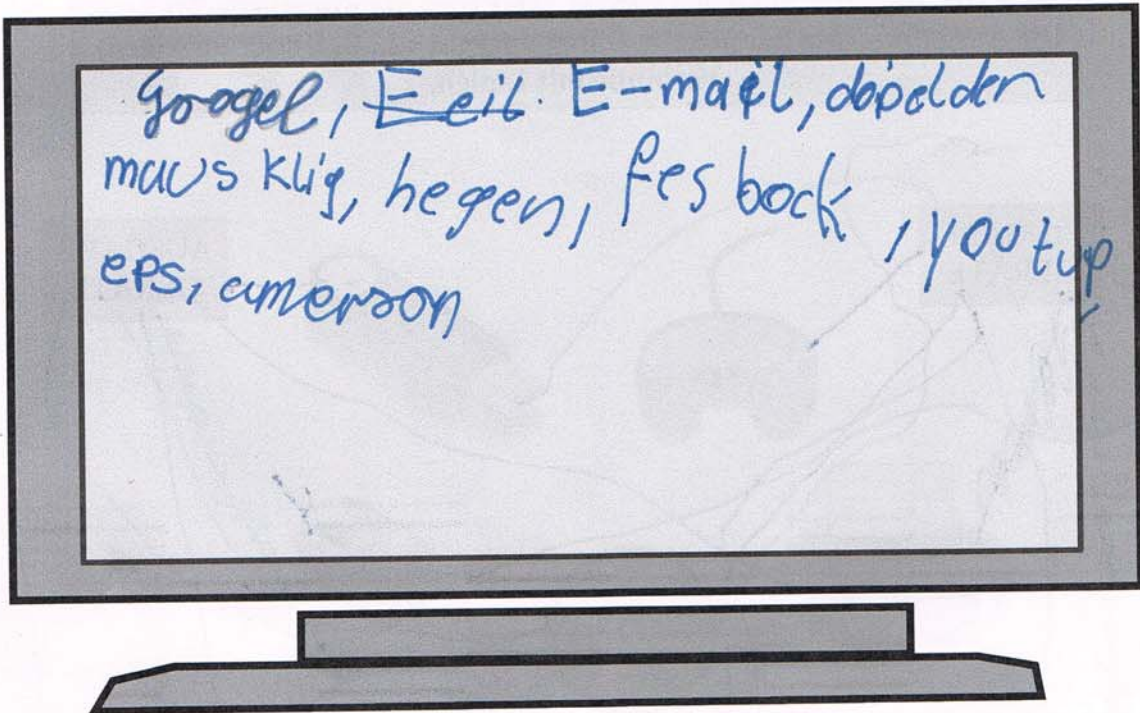 Googel, E-mail, dopelden
maus klig, hegen, fes bock, youtup,
eps, amerson